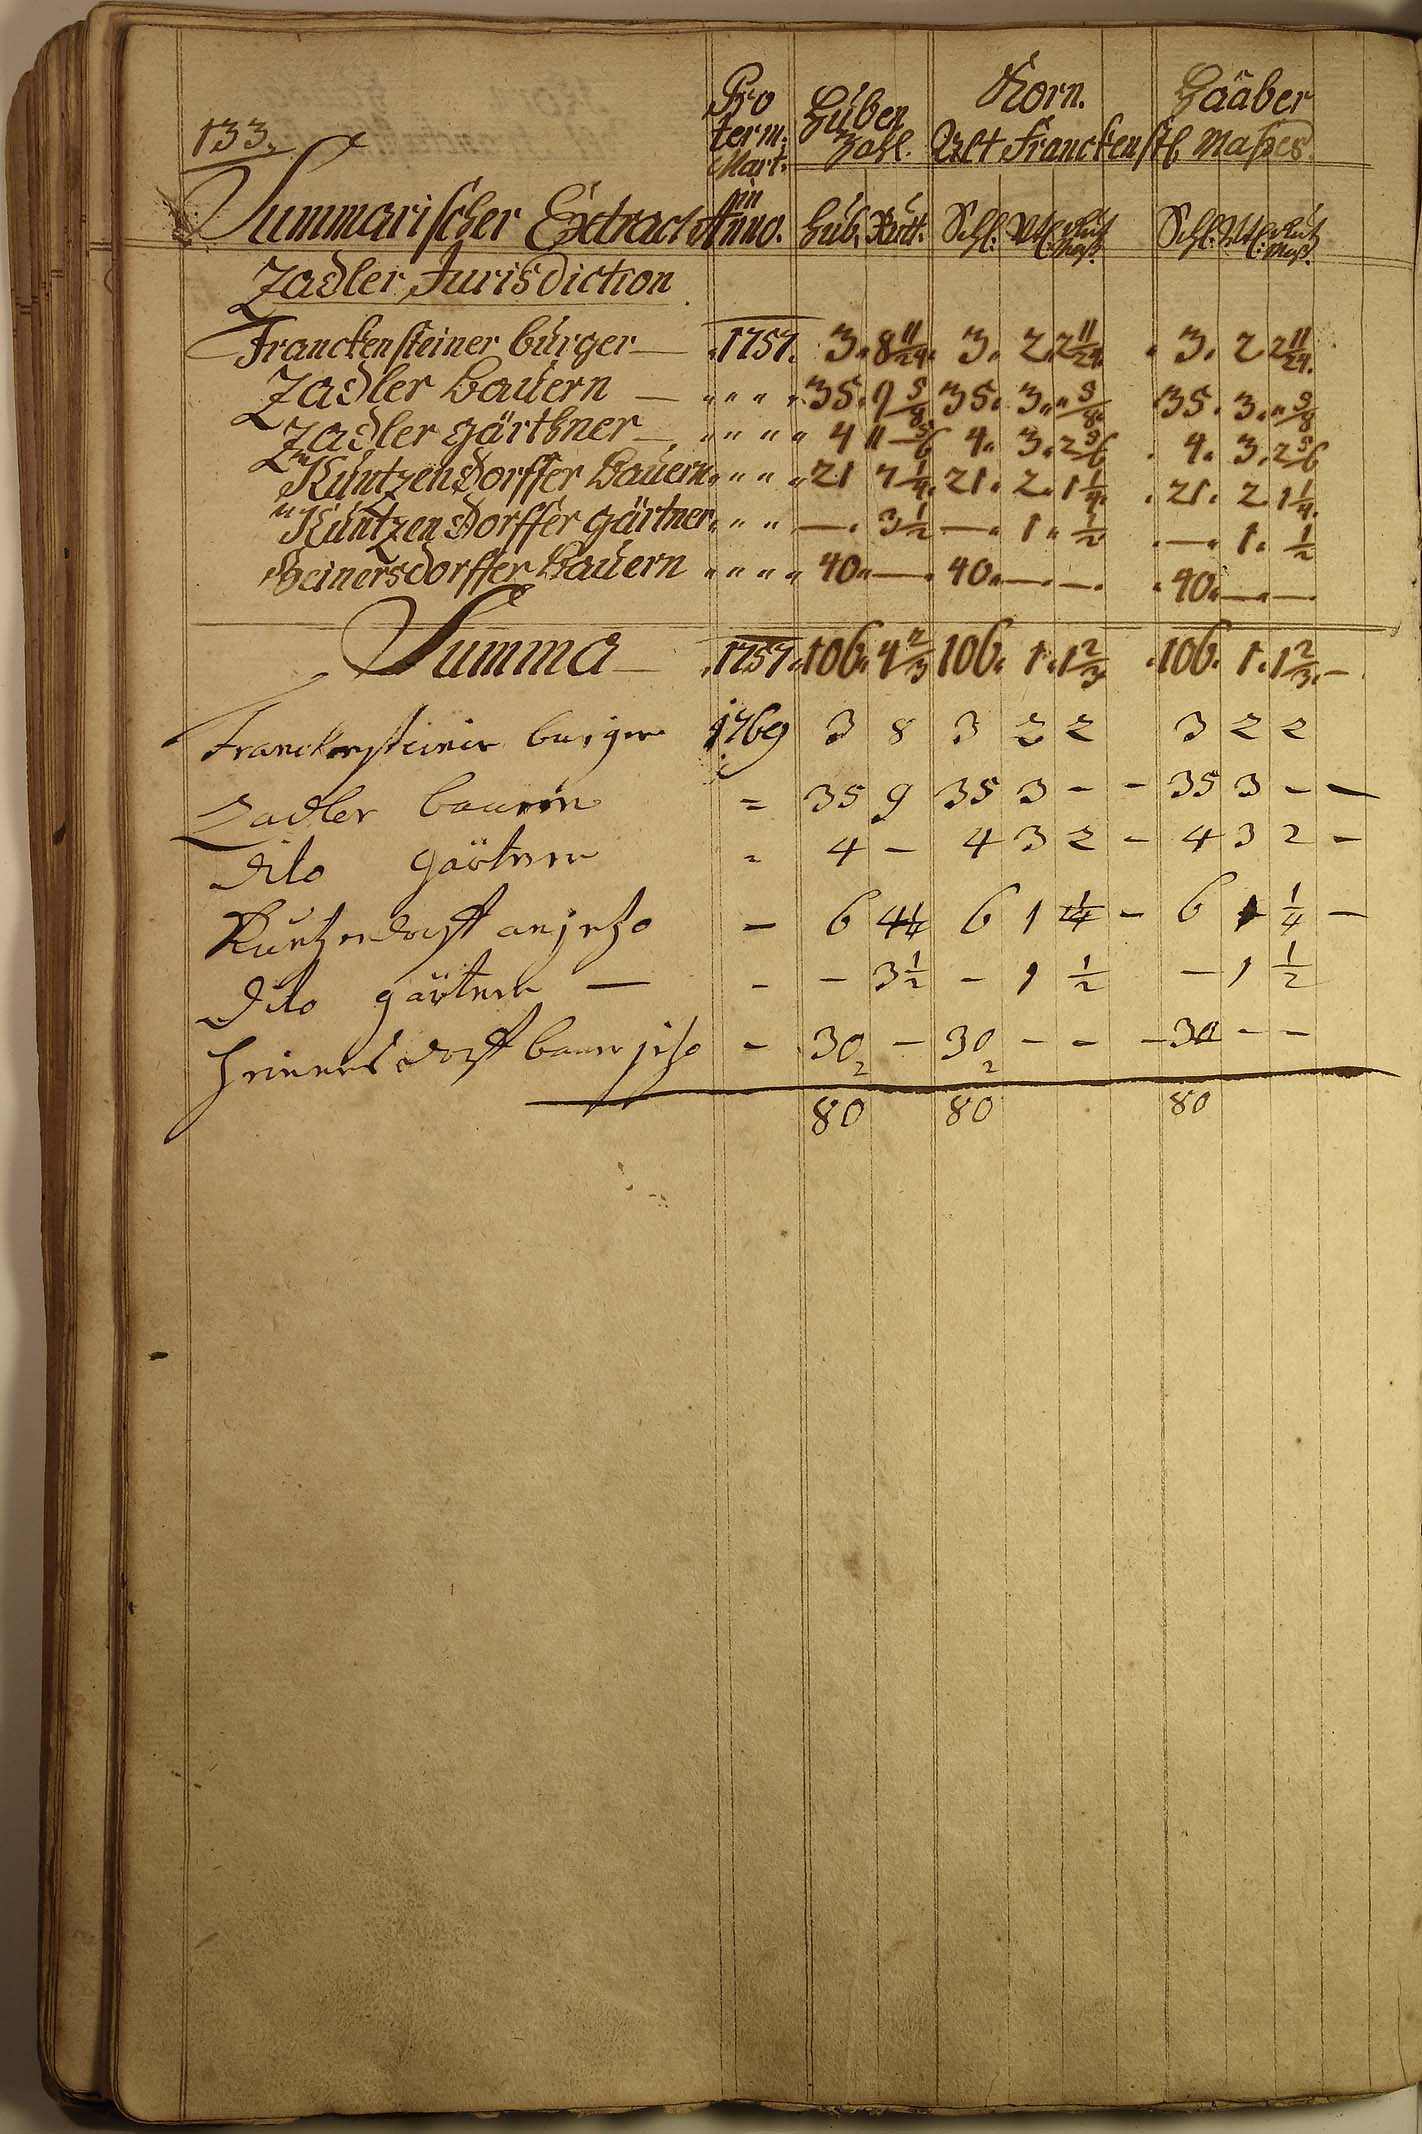 133.
Pro term: Mart: in Anno.
Huben Zahl.
Korn. Haaber
Alt Franckenst: Maßes
Summarischer Extract
Hub. Rutt. Schl: Vtl: Maß. Schl: Vtl: Maß.
Zadler Jurisdiction
Franckensteiner burger — 1757. 3. 8 11/24. 3. 2. 2 11/24. 3. 2 2 11/24.
Zadler Bauern — " " " " 35. 9 5/8 35. 3. " 5/8. 35. 3. " 5/8
Zadler gärthner — " " " " 4 11 — 5/6 4. 3. 2 5/6 4. 3. 2 5/6
Kuntzendorffer Bauern " " " 21 7 1/4. 21. 2. 1 1/4. 21. 2 1 1/4.
Kuntzendorffer gärtner " " " —. 3 1/2 —. 1. 1/2 —. 1. 1/2
Heinersdorffer Bauern " " " " 40. — . 40. — . — . 40. — . —
Summa — 1757. 106. 4 2/3 106. 1. 1 2/3 106. 1. 1 2/3. —
Franckensteiner burger 1769 3 8 3 2 2 3 2 2
Zadler bauern = 35 9 35 3 - - 35 3 - -
dito gärtner = 4 - 4 3 2 - 4 3 2 -
Kuntzendorff anjetzo - 6 6 1 1/4 - 6 1 1/4 -
dito gärtner — - - 3 1/2 - 1 1/2 - 1 1/2
Heinersdorff bauer jetzo - 30 2 - 30 2 - - - 30 - -
80 80 80